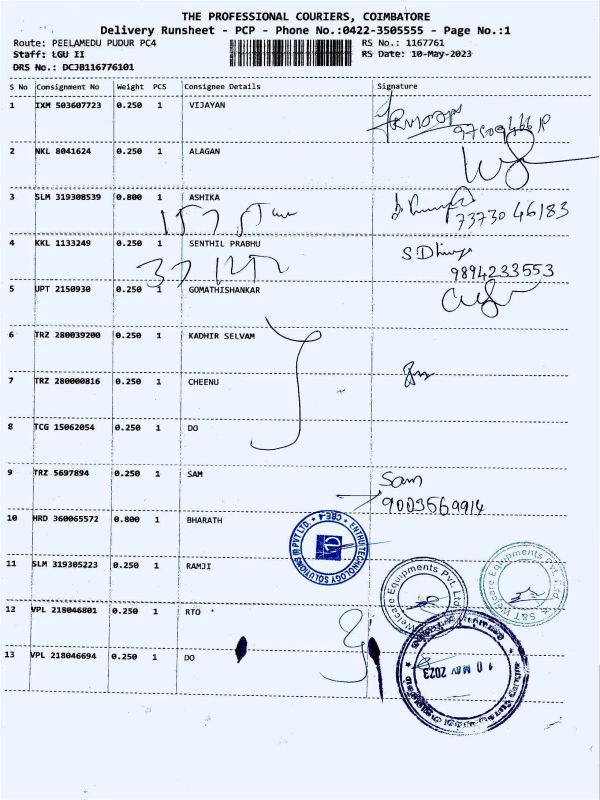 THE PROFESSIONAL COURIERS, COIMBATORE
Delivery Runsheet - PCP - Phone No.:0422-3505555 - Page No.:1
Route: PEELAMEDU PUDUR PC4 RS No.: 1167761
Staff: LGU II RS Date: 10-May-2023
DRS No.: DCJB116776101
S No Consignment No Weight PCS Consignee Details Signature
1 IXM 503607723 0.250 1 VIJAYAN
2 NKL 8041624 0.250 1 ALAGAN
3 SLM 319308539 0.800 1 ASHIKA
7373046183
4 KKL 1133249 0.250 1 SENTHIL PRABHU
9894233553
5 UPT 2150930 0.250 1 GOMATHISHANKAR
6 TRZ 280039200 0.250 1 KADHIR SELVAM
7 TRZ 280000816 0.250 1 CHEENU
8 TCG 15062054 0.250 1 DO
9 TRZ 5697894 0.250 1 SAM Sam
9003569914
10 HRD 360065572 0.800 1 BHARATH
ENTHU TECHNOLOGY SOLUTIONS (I) PVT LTD. * CBE-4 *
11 SLM 319305223 0.250 1 RAMJI
Welcare Equipments Pvt. Ltd
Welcare Equipments Pvt. Ltd.
12 VPL 218046801 0.250 1 RTO
13 VPL 218046694 0.250 1 DO
10 MAY 2023